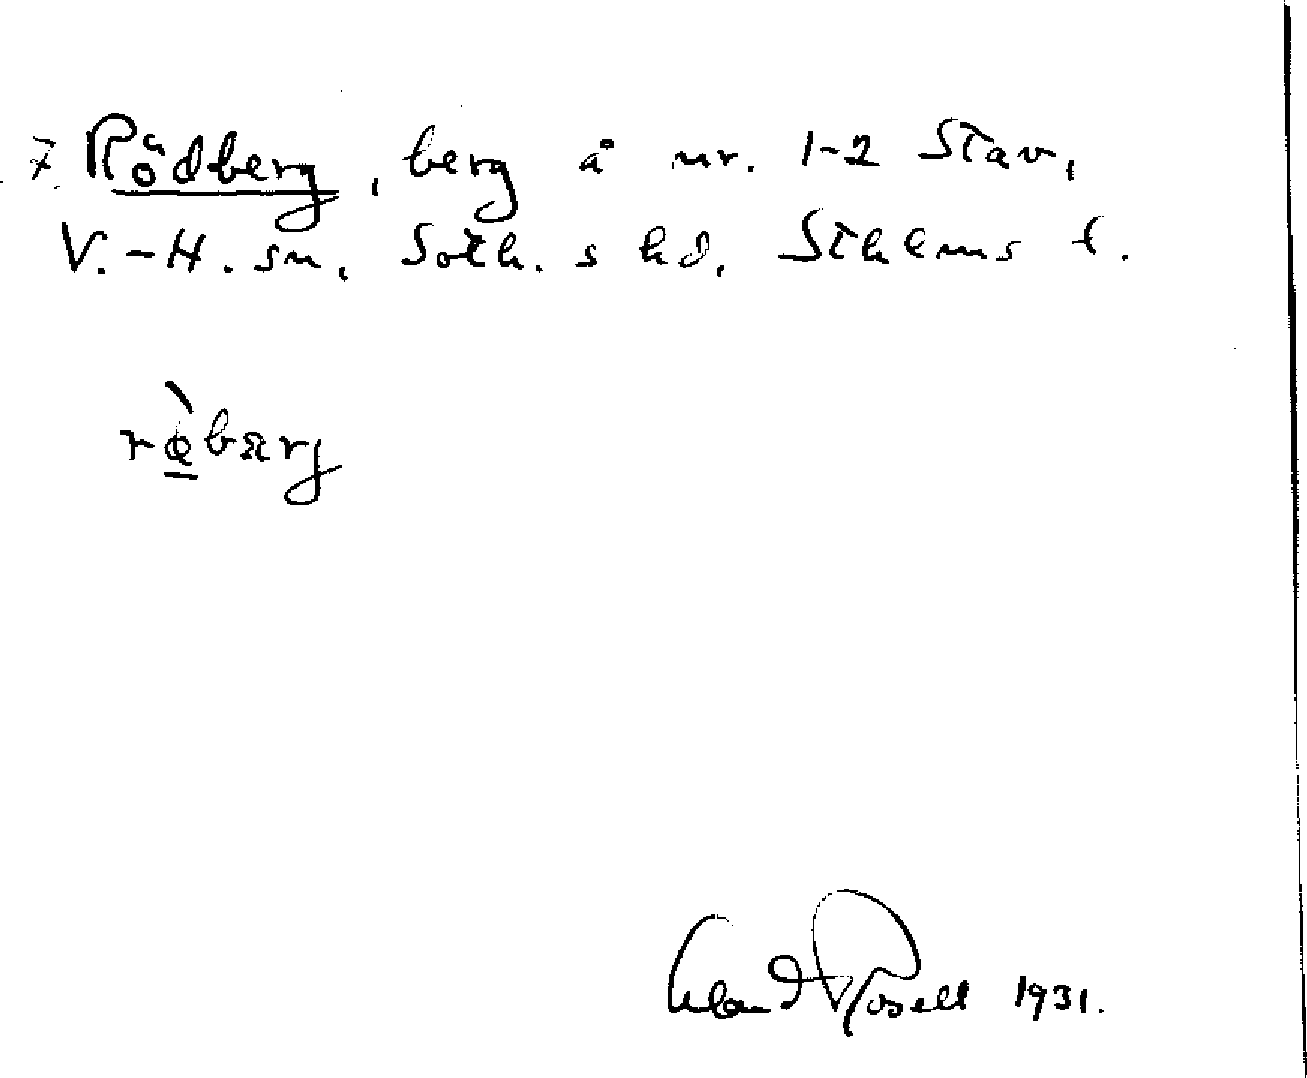 7. Rödberg, berg å nr. 1-2 Stav,
V.-H. sn, Soth. s hd, Sthlms l.
rø̀bærj
Erland Rosell 1931.